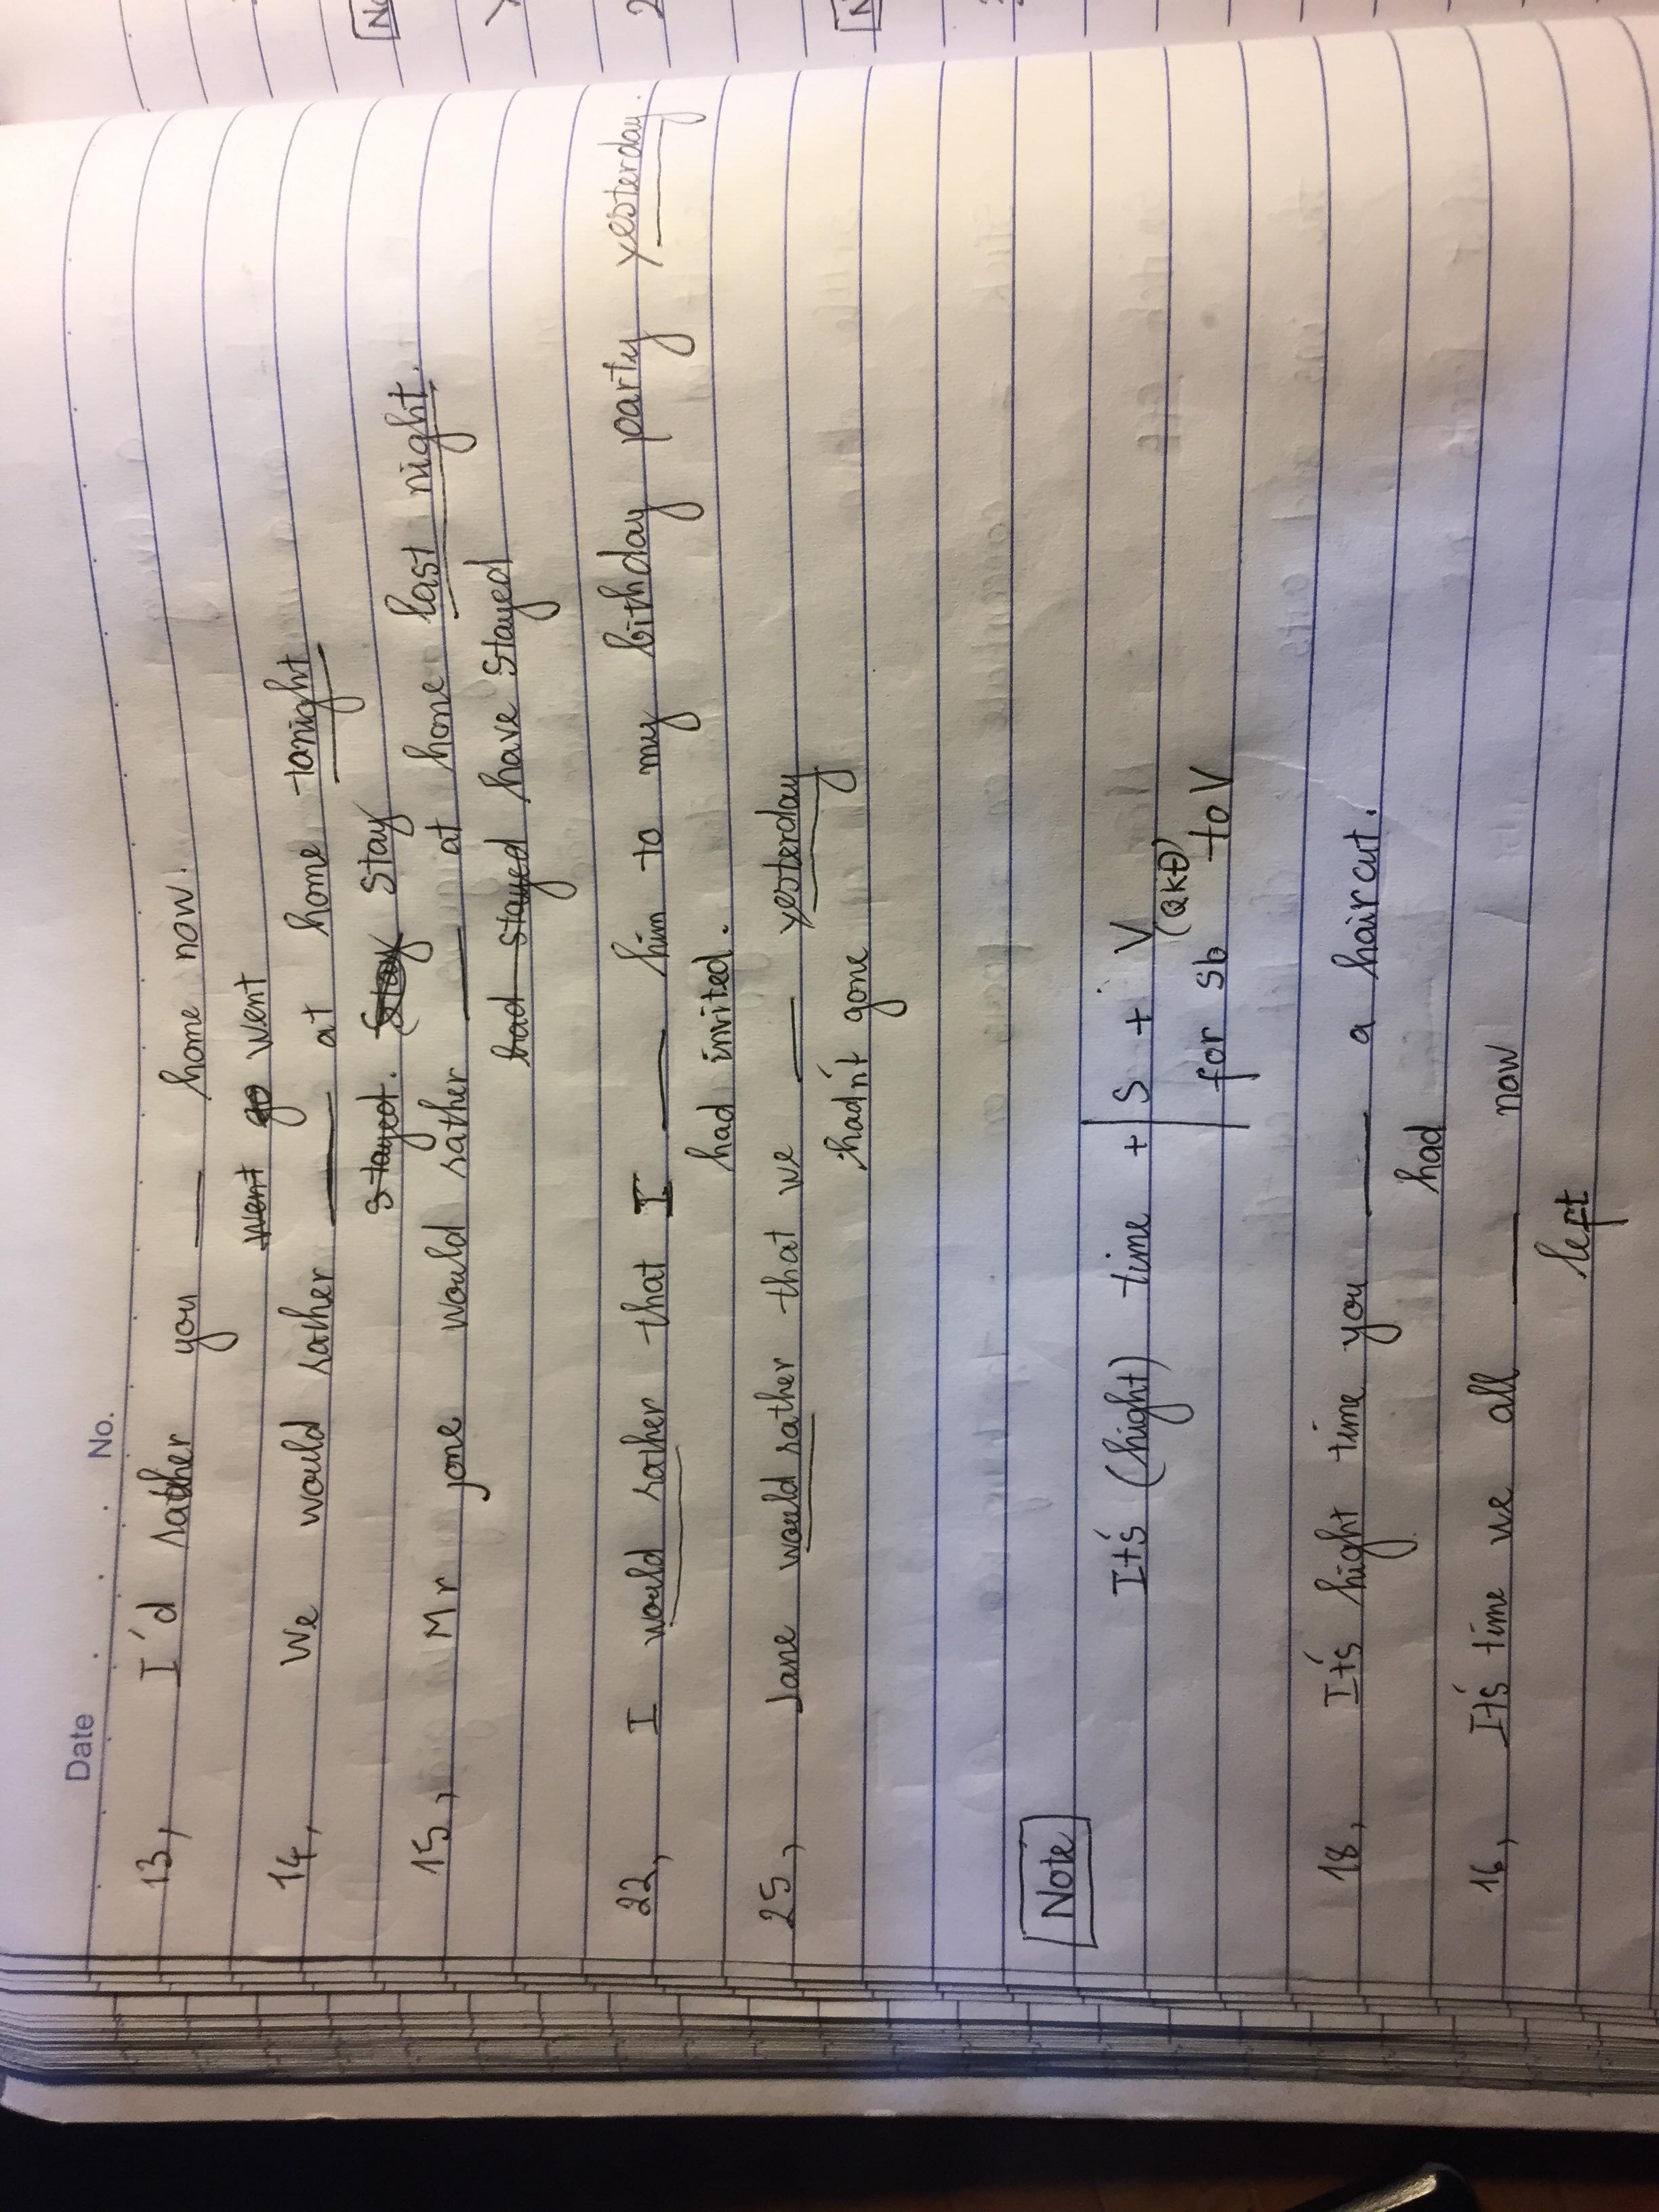 Date No.
13, I'd rather you ___ home now.
went go went
14, We would rather ___ at home tonight
stayed. stay stay
15, Mr jone would rather ___ at home last night.
had stayed have stayed
22, I would rather that I ___ him to my bithday party yesterday.
had invited.
25, Jane would rather that we ___ yesterday
hadn't gone
Note
It's (hight) time + S + V
(QKĐ)
for sb to V
18, It's hight time you ___ a haircut.
had
16, It's time we all ___ now
left